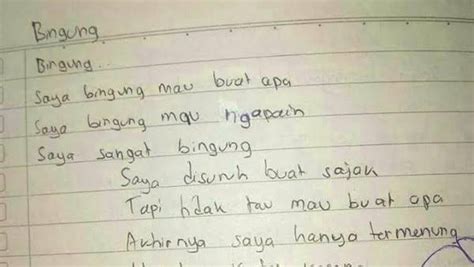 Bingung
Bingung..
Saya bingung mau buat apa
Saya bingung mau ngapain
Saya sangat bingung
Saya disuruh buat sajak
Tapi tidak tau mau buat apa
Akhirnya saya hanya termenung